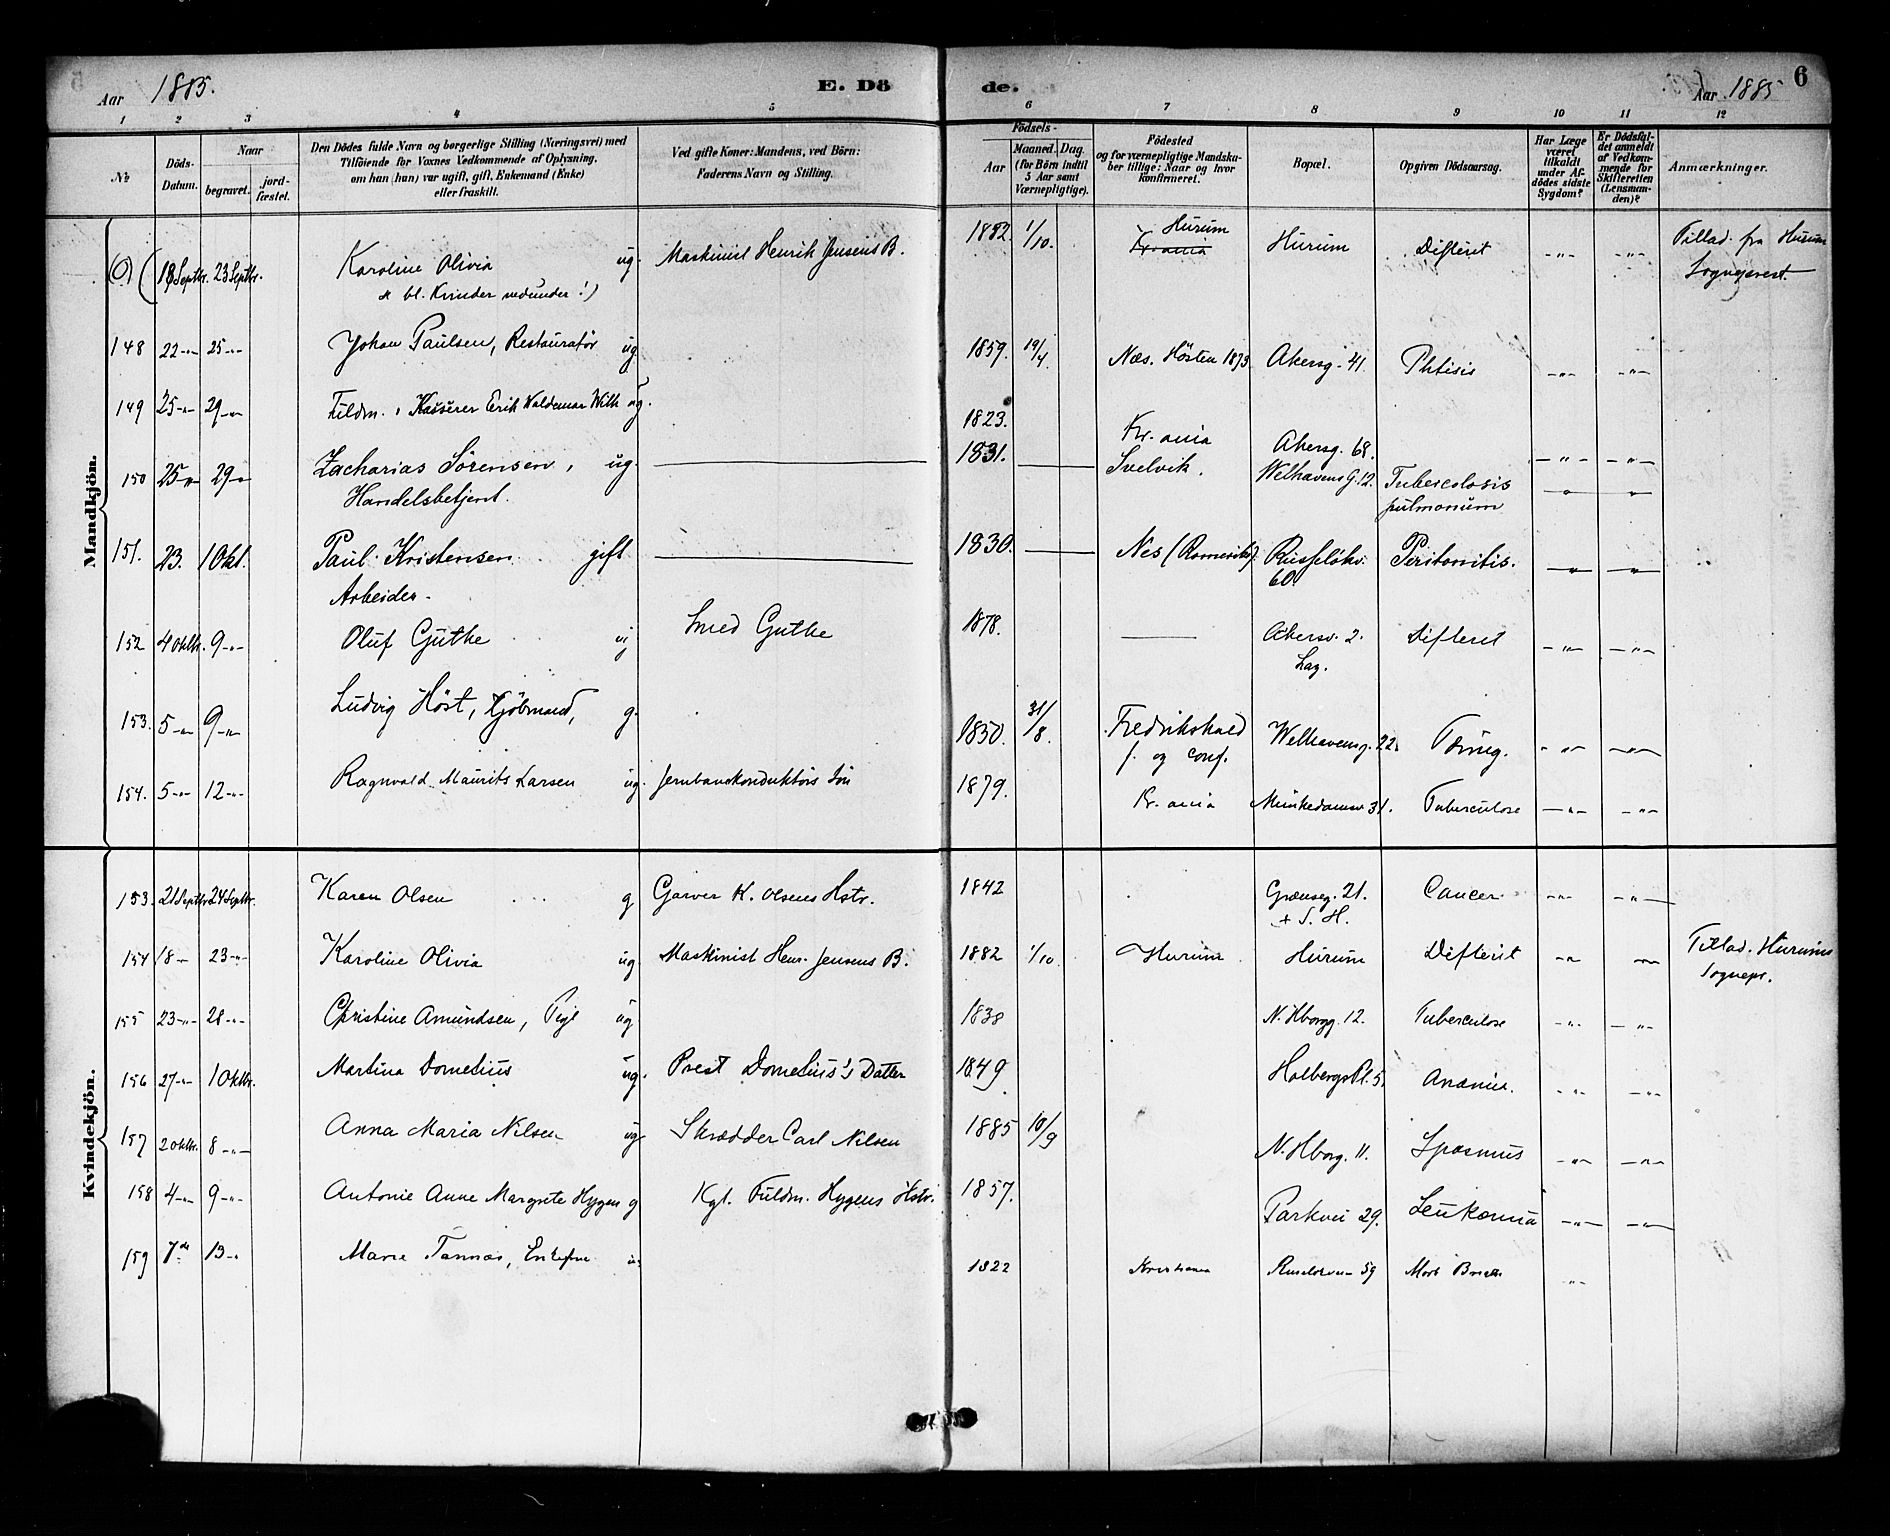 Aar 1885.
E. Döde.
Aar 1885
6
1 2 3 4 5 6 7 8 9 10 11 12
№
Döds-Datum.
Naar
begravet.
jordfæstet.
Den Dödes fulde Navn og borgerlige Stilling (Næringsvei) med
Tilföiende for Voxnes Vedkommende af Oplysning,
om han (hun) var ugift, gift, Enkemand (Enke)
eller fraskilt.
Ved gifte Koner: Mandens, ved Börn:
Faderens Navn og Stilling.
Födsels-
Aar
Maaned. Dag.
(for Börn indtil
5 Aar samt
Værnepligtige).
Födested
og for værnepligtige Mandskaber tillige: Naar og hvor
konfirmeret.
Bopæl.
Opgiven Dödsaarsag.
Har Læge
været
tilkaldt
under Afdödes sidste
Sygdom?
Er Dödsfaldet anmeldt
af Vedkommende for
Skifteretten
(Lensmanden)?
Anmærkninger.
Mandkjön.
18 Septbr. 23 Septbr. Karoline Olivia ug. Maskinist Henrik Jensens B. 1882. 1/10. Kr.ania Hurum Hurum Difterit -"- -"- Tillad. fra Hurum
Sogneprest
bl. Kvinder nedunder!)
148 22 -"- 25 -"- Johan Paulsen, Restauratör ug. 1859. 19/4. Næs. Hösten 1873 Akersg. 41. Phtisis -"- -"-
149 25 -"- 29 -"- Fuldm. Kasserer Erik Valdemar Wilh ug. 1823. Kr.ania Akersg. 68. -"- -"-
150 25 -"- 29 -"- Zacharias Sörensen, ug. 1831. Svelvik. Welhavens G. 12. Tuberculosis
Handelsbetjent. pulmonum -"- -"-
151. 23. 1 Okt. Paul Kristensen gift 1830. Nes (Romerike) Russelökv. Peritonitis. -"- -"-
Arbeider. 60.
152 4 Oktbr. 9 -"- Oluf Guthe Smed Guthe 1878. Akersv. 2. Difterit -"- -"-
153. 5 -"- 9 -"- Ludvig Höst, Kjöbmand, g. 1850. 31/8. Fredrikshald Welhavensg. 22. Tæring. -"- -"-
f. og conf.
154. 5 -"- 12 -"- Ragnvald Maurits Larsen ug. Jernbanekonduktörs Sön 1879. Kr.ania Munkedamsv. 31. Tuberculose -"- -"-
Kvindekjön.
153. 21 Septbr. 24 Septbr. Karen Olsen g Garver K. Olsens Hstr. 1842 Grænseg. 21. Cancer -"- -"-
+ S. H.
154 18 - 23 -"- Karoline Olivia ug Maskinist Henr. Jensens B. 1882 1/10. Hurum Hurum Difterit -"- -"- Tillad. Hurums
Sognepr.
155 23 -"- 28 -"- Christine Amundsen, Pige ug 1838 N. Hborgg. 12. Tuberculose -"- -"-
156 27 -"- 1 Oktbr. Martina Domelius ug. Prest Domelius's Datter 1849 Holbergs Pl. 5. Anæmie. -"- -"-
157 2 Oktbr. 8 -"- Anna Maria Nilsen ug Skrædder Carl Nilsen 1885 10/9 N. Hborg. 11. Spasmus -"- -"-
158 4 -"- 9 -"- Antonie Anne Margrete Hygen g Kgl. Fuldm. Hygens Hstr. 1857. Parkvei 29. Leukæmia -"- -"-
159 7de 13 -"- Marie 1822 Kristiania 59 Morb -"-